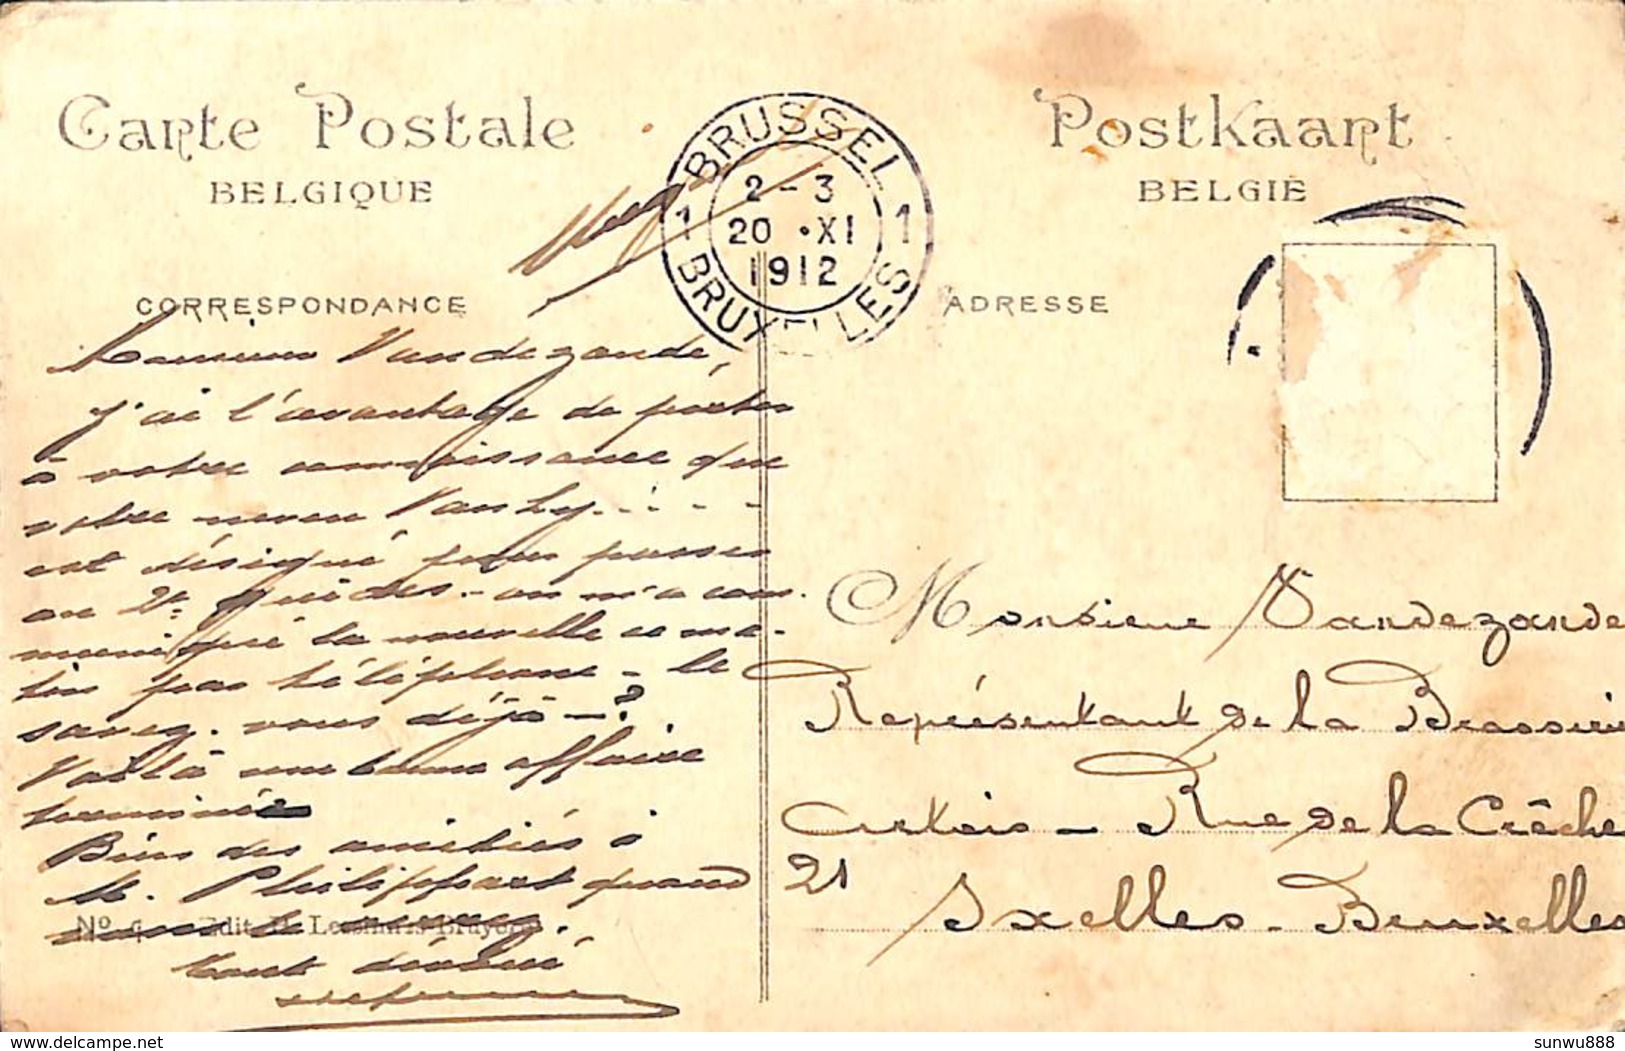 Carte Postale
BELGIQUE
CORRESPONDANCE
Monsieur Vandezande,
j'ai l'avantage de porter
à votre connaissance que
votre neveu Van Ly....
est désigné pour passer
au 2e guides. - on m'a com-
muniqué la nouvelle ce ma-
tin par téléphone - le
savez-vous déjà - ?
Voilà une bonne affaire
terminée
Bien des amitiés à
M. Philippart quand
vous le verrez.
Nº Edit.
tout dévoué
BRUSSEL
1 1
2-3
20 •XI
1912
BRUXELLES
Postkaart
BELGIË
ADRESSE
Monsieur Vandezande
Représentant de la Brasserie
Artois - Rue de la Crêche
21
Ixelles - Bruxelles
delcampe.net
sunwu888